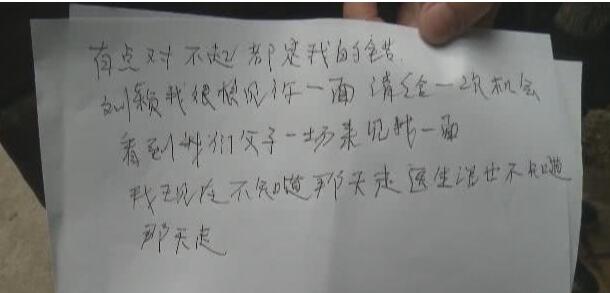 有点对不起都是我的错
刘颖我很想见你一面 请给一次机会
看到我们父子一场来见我一面
我现在不知道那天走 医生说也不知道
那天走